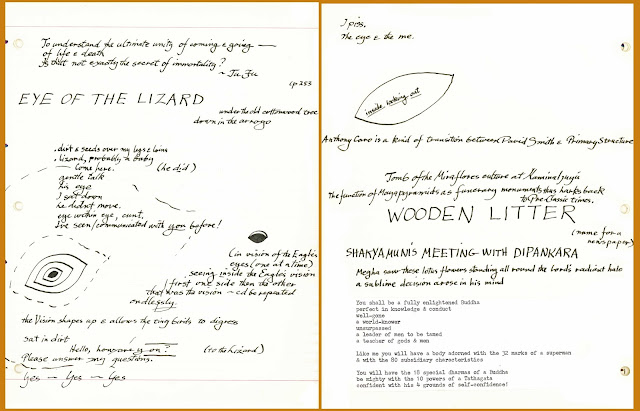 To understand the ultimate unity of coming & going —
of life & death
Is that not exactly the secret of immortality?
~ Tu Fu
(p 253
EYE OF THE LIZARD
under the old cottonwood tree
down in the arroyo
. dirt & seeds over my legs & loins
. lizard, probably a baby
— Come here. (he did)
gentle talk
his eye
I sat down
he didn't move.
eye within eye, cunt,
I've seen/communicated with you before!
(in vision of the Eagle's
eyes (one at a time)
seeing inside the Eagle's vision
first one side then the other
that was the vision — cd be repeated
endlessly.
the Vision shapes up & allows the tiny birds to digress
sat in dirt
Hello, how are you? (to the lizard)
Please answer my questions.
Yes — Yes — Yes
I piss.
the eye & the me.
inside looking out
Anthony Caro is a kind of transition between David Smith & Primary Structure
Tomb of the Miraflores culture at Kaminaljuyu
the function of Maya pyramids as funerary monuments thus harks back
to Pre Classic times.
WOODEN LITTER
(name for a
newspaper)
SHAKYAMUNI'S MEETING WITH DIPANKARA
Megha saw these lotus flowers standing all round the Lord's radiant halo
a sublime decision arose in his mind
You shall be a fully enlightened Buddha
perfect in knowledge & conduct
well-gone
a world-knower
unsurpassed
a leader of men to be tamed
a teacher of gods & men
Like me you will have a body adorned with the 32 marks of a superman
& with the 80 subsidiary characteristics
You will have the 18 special dharmas of a Buddha
be mighty with the 10 powers of a Tathagata
confident with his 4 grounds of self-confidence!